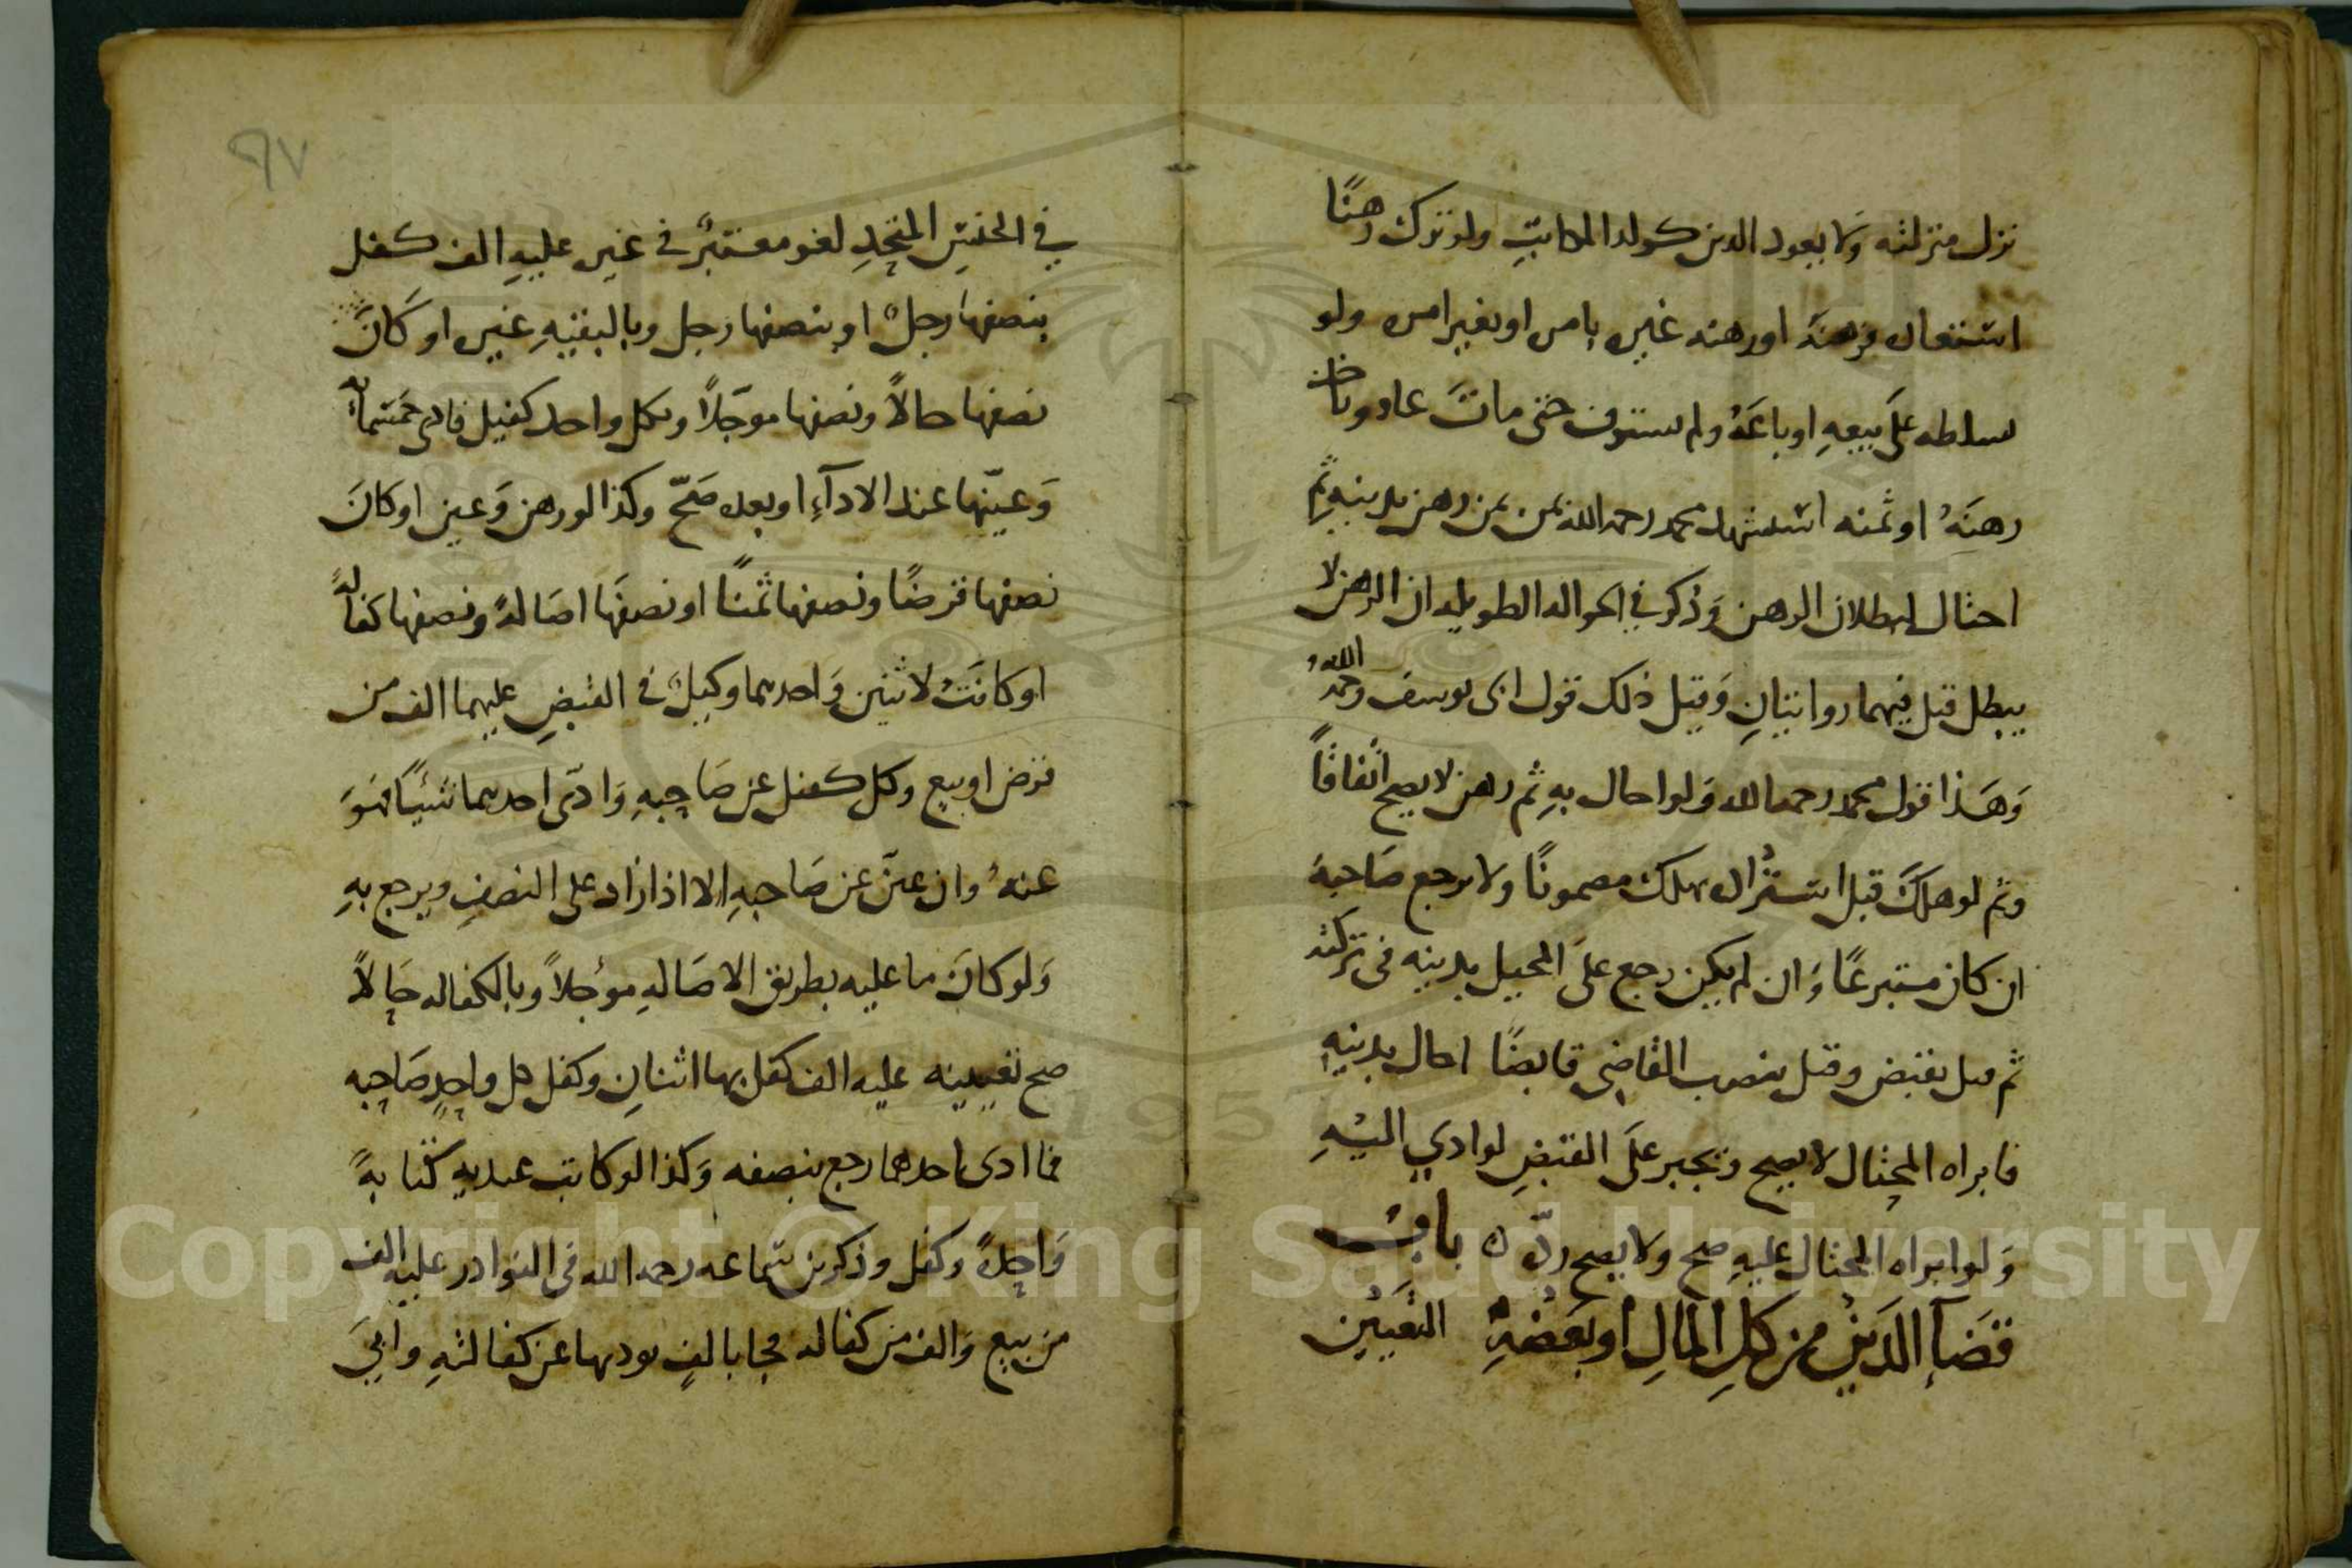 نزل منزلته ولا يعود الدين كولد المكاتبِ ولو ترك رهنًا
استعاره فرهنه او رهنه غيره بامره او بغير امره ولو
سلطه على بيعهِ او باعَهُ ولم يستوف حتى ماتَ عاد وتاخر
رهنَهُ او ثمنه استشهد محمد رحمه الله بمن رهن بدينهِ ثم
احتال لبطلان الرهن وَذكر في الحوالة الطويلة ان الرهن لا
يبطل قيل فيهما روايتانِ وَقيل ذلك قول ابى يوسف رحمه اللهُ
وَهَذا قول محمد رحمه الله وَلو احال بهِ ثم رهن لا يصح اتفاقاً
وثم لو هلكَ قبل استرداده يهلك مضمونًا ولا يرجع صَاحبهَ
ان كان متبرعًا وَان لم يكن رجع علىَ المحيل بدينه فى تركته
ثم قيل يقبض وقيل ينصب القاضِي قابضًا احال بدينهِ
فابراه المحتال لا يصح وَيجبر علىَ القبضِ لو ادي اليْهِ
وَلو ابراه المحتال عليهِ صح ولا يصح ردّه ن بابُ
قضَآءِ الدَينِ من كلِ المالِ او بَعضهِ التعيُين
٩٧
في الجنسِ المتحِدِ لغو معتبرٌ في غيره عليهِ الف كفل
بنصفها رجلٌ او بنصفها رجل وبالبقيةِ غيره او كَانَ
نصفها حالاً ونصفها موجَلاً وبكل واحد كفيل فادى خمسمائة
وَعيّنها عند الادآءِ او بعده صَحّ وكذا لو رهن وَعين او كانَ
نصفها قرضًا ونصفها ثمنًا او نصفهَا اصَالةً ونصفها كفالةً
او كانتَ لاثنين وَاحدهما وكيلٌ في القبضِ عليهما الف من
قرض او بيع وكل كفل عن صَاحِبهِ وَادّى احدهما شيئًا فهوَ
عنهُ وان عيّن عن صَاحبهِ الا اذا زاد على النصفِ ويرجع بهِ
وَلو كانَ ما عليه بطريق الاصَالهِ موُجلاً وبالكفاله حَالاً
صح تعيينه عليه الف كفل بها اثنانِ وكفل كل واحِدٍ صَاحِبه
فما ادى احدهما رجع بنصفه وَكذا لو كاتب عبديهِ كتَابةً
وَاحِدةً وكفل وذكر بن سماعه رحمه الله فى النوادر عليه الف
من بيع وَالف من كفالة فجا بالفٍ يوديها عن كفالتهِ وابيَ